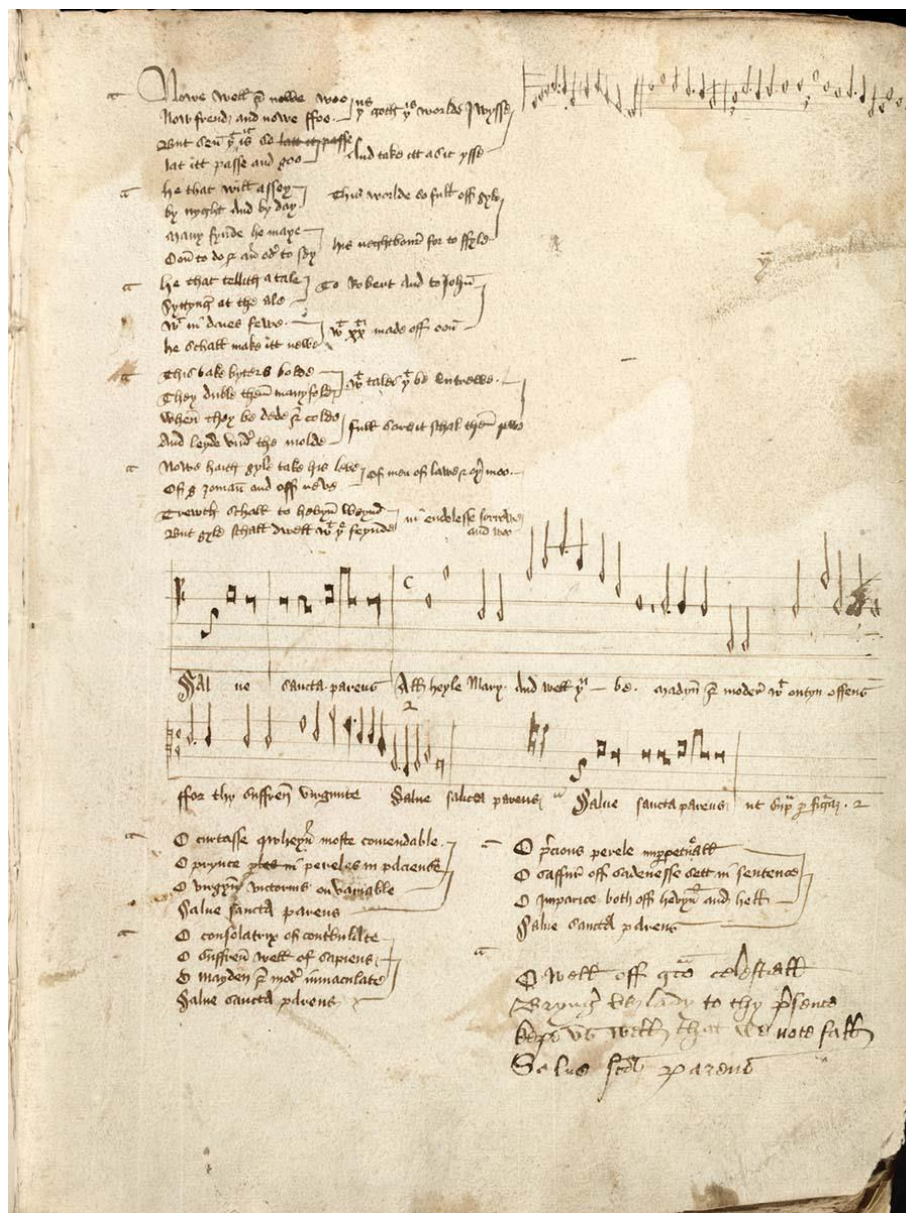 Nowe well & nowe woo
Now frend and nowe ffoo
þus goth þis worlde I wysse
But sen þt it is so latt itt passe
lat itt passe and goo
And take itt as it ysse
he that will assay
by nyght And by day
This worlde so full off gyle
Many fynde he maye
Don to do & to say
his neghtbour for to ffyle
he that tellith a tale
To Robert And to John
Syttyng at the ale
wt in daies fewe
he schall make itt newe
wt xx made off oon
This bake byters bolde
They duble them many fold
wt tales þt be Untrewe
When they be dede & colde
And leyde undr the molde
full sore it schal them rewe
Nowe haith gyle take his leve
Of men of lawe & moo
Of zoman and off reve
Trewth schall to hevyn weynd
But gyle schall dwell wt þe feynde
in endelesse sorrowe
and woo
Sal ve sancta parens All heyle Mary And well þu be. Madyn & moder wt ontyn offens
ffor thy suffren virgunte Salve sancta parens Salve sancta parens ut
O curtasse qwheyn moste comendable
O prynce in pereles in pacience
O virgyn victorius onvariable
Salve sancta parens
O consolatrix of contribulate
O suffren well of sapiens
O mayden & modr immaculate
Salve sancta parens
O precious perele imperpetuall
O saffur off sadenesse sett in sentence
O imparice both off hevyn and hell
Salve sancta parens
O Well off celestiall
Bryng lady to thy presence
kepe us well that we note fall
Salve scta parens